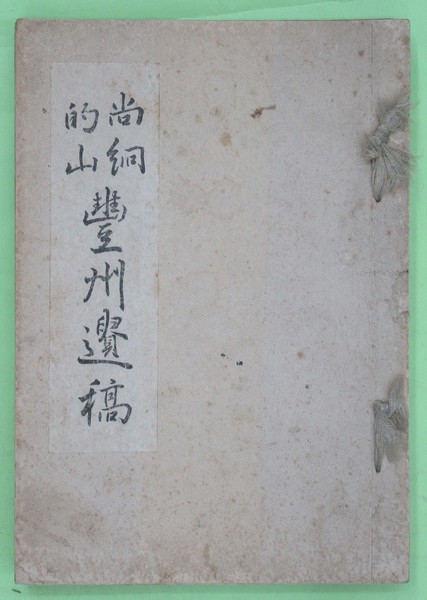 尚絅
的山
豐州選稿